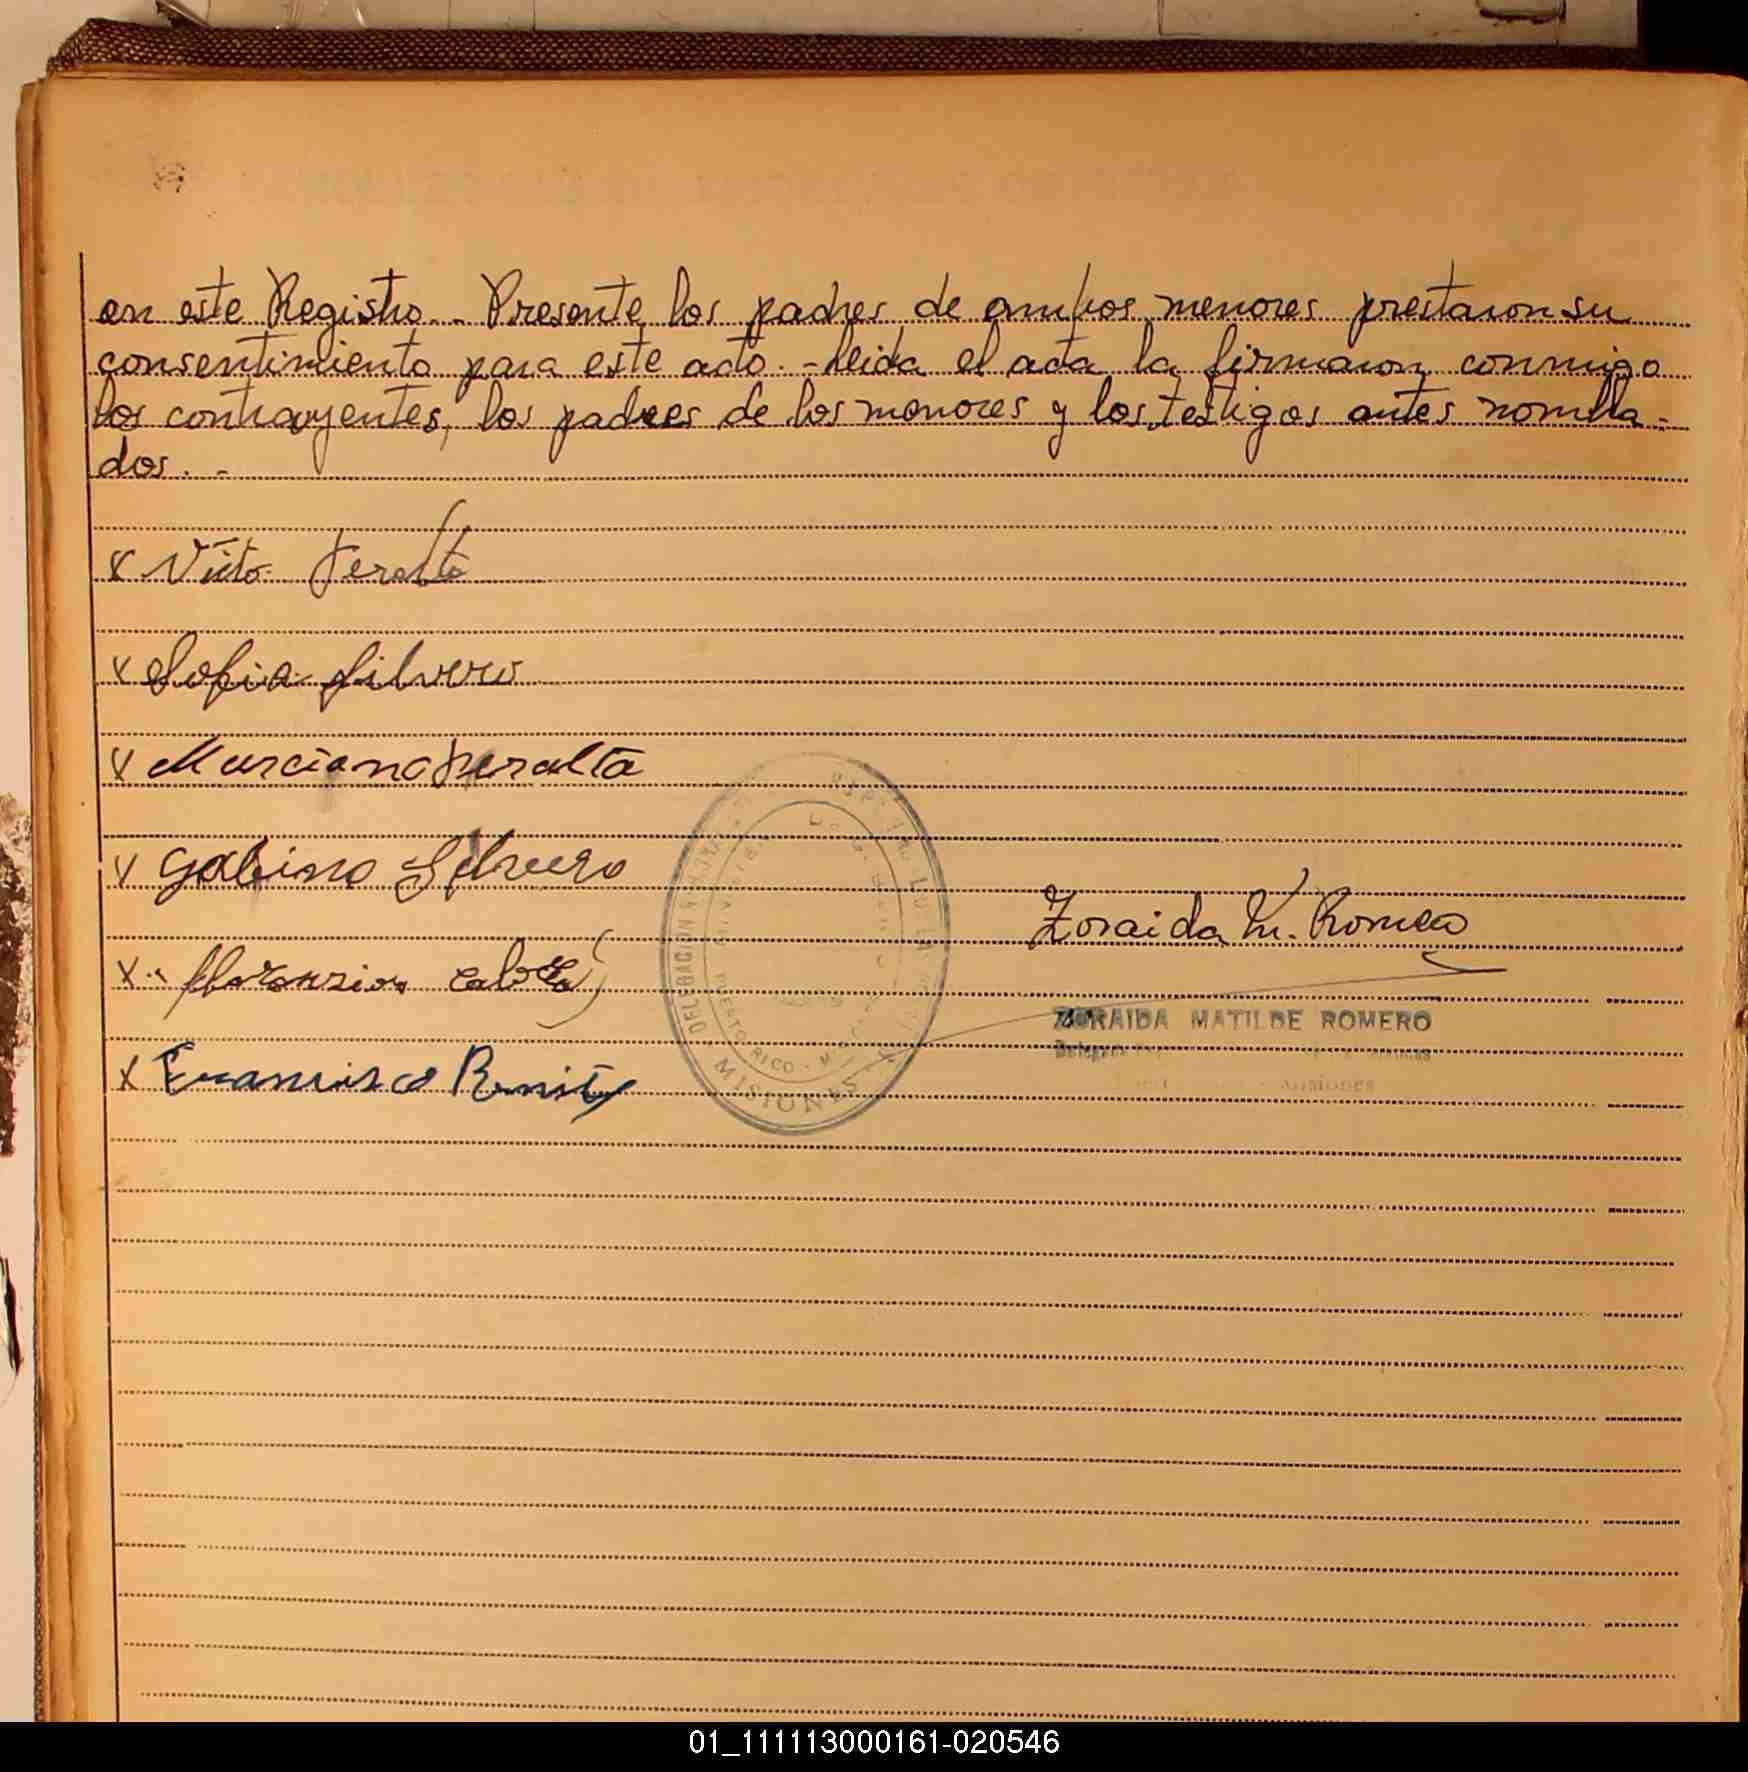 en este Registro.- Presente los padres de ambos menores prestaron su
consentimiento para este acto.- Leida el acta la firmaron conmigo
los contrayentes, los padres de los menores y los testigos antes nombra-
dos.-
x Victo Peralta
x Sofia Silvero
x Marciana Peralta
x Gabino Silvero
Zoraida M. Romero
x Cabrera
ZORAIDA MATILDE ROMERO
x Francisco Benitez
DELEGACION
PUERTO RICO - MISIONES
01_111113000161-020546